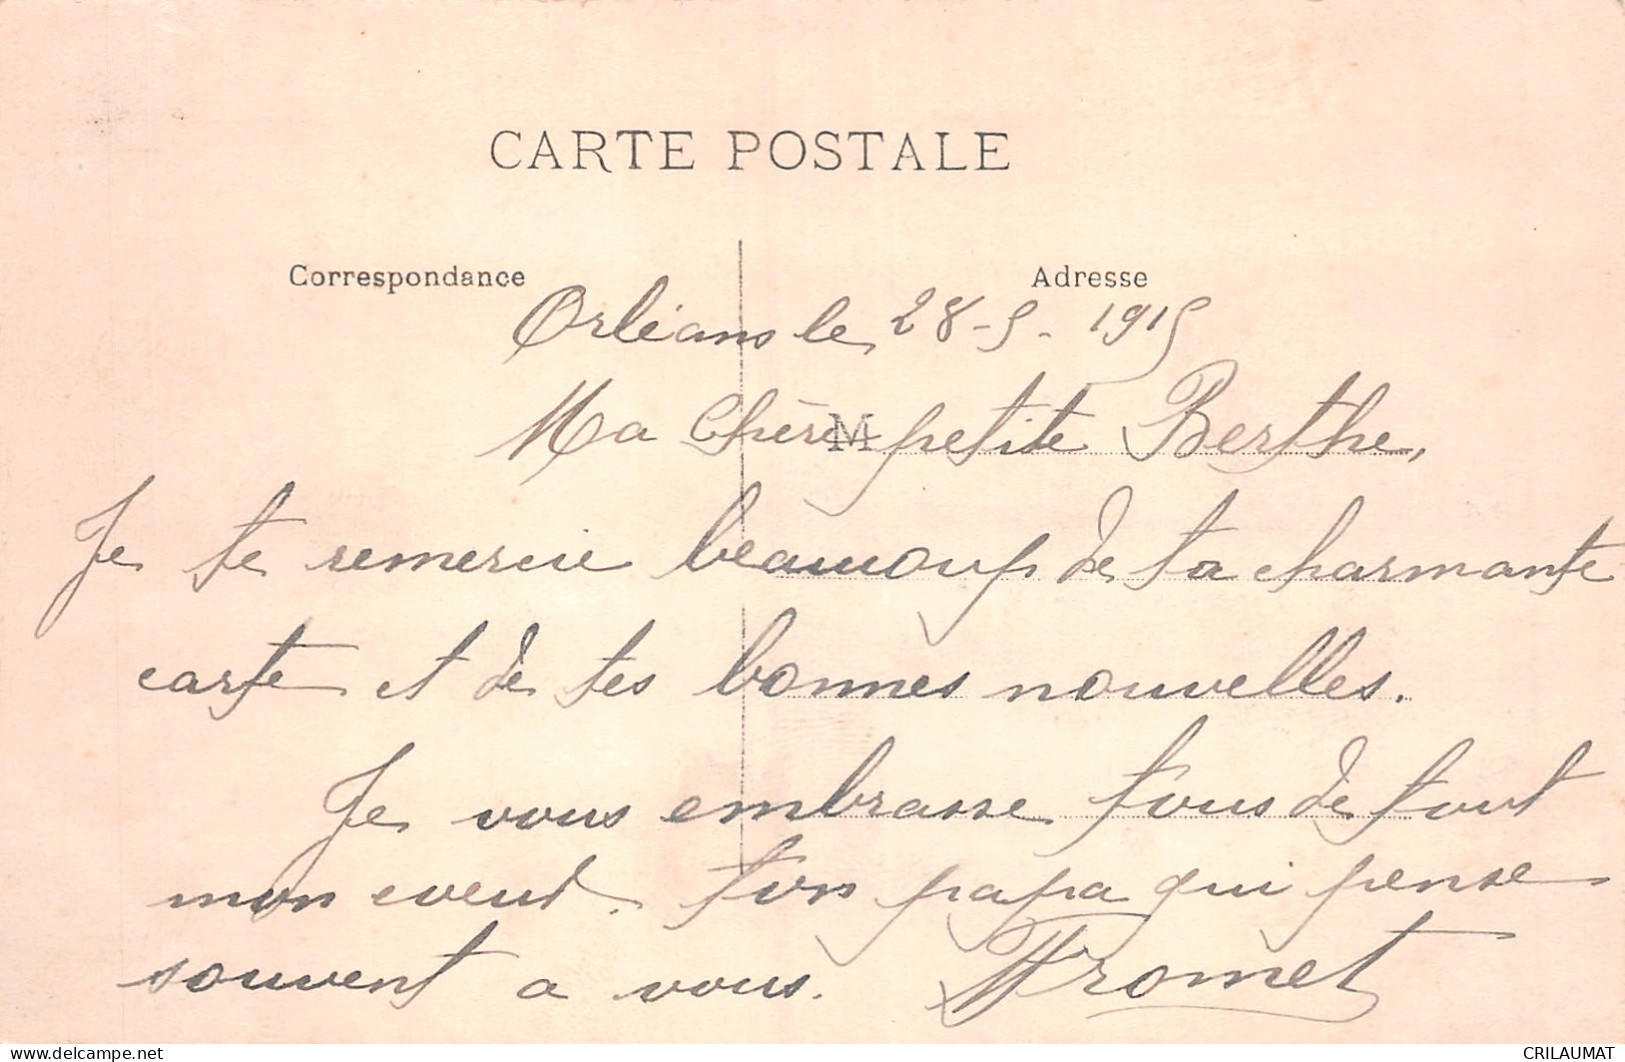 CARTE POSTALE
Correspondance
Adresse
Orléans le 28-5-1915
M
Ma Chère petite Berthe,
Je te remercie beaucoup de ta charmante
carte et de tes bonnes nouvelles.
Je vous embrasse tous de tout
mon coeur. Ton papa qui pense
souvent a vous. Fromet
delcampe.net
CRILAUMAT